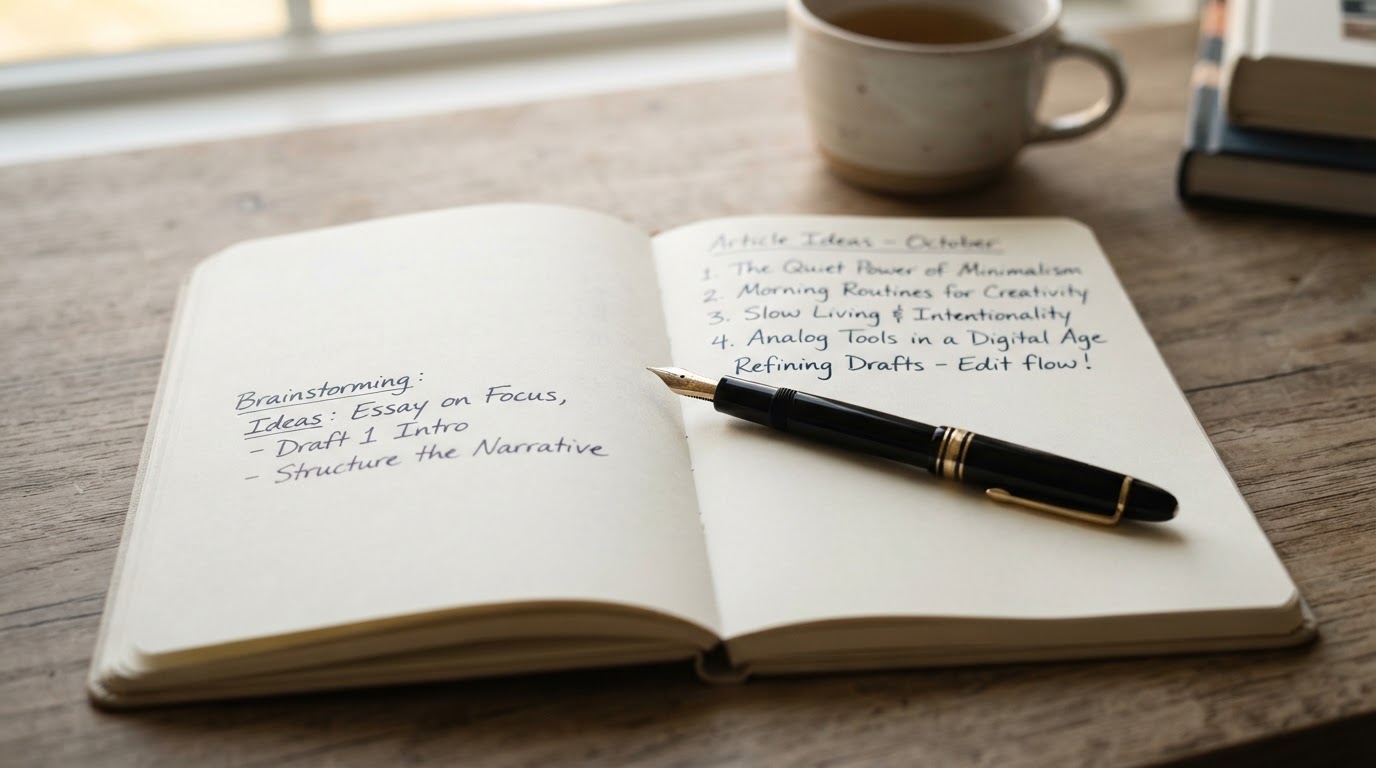 Brainstorming:
Ideas: Essay on Focus,
- Draft 1 Intro
- Structure the Narrative
Article Ideas - October
1. The Quiet Power of Minimalism
2. Morning Routines for Creativity
3. Slow Living & Intentionality
4. Analog Tools in a Digital Age
Refining Drafts - Edit flow!